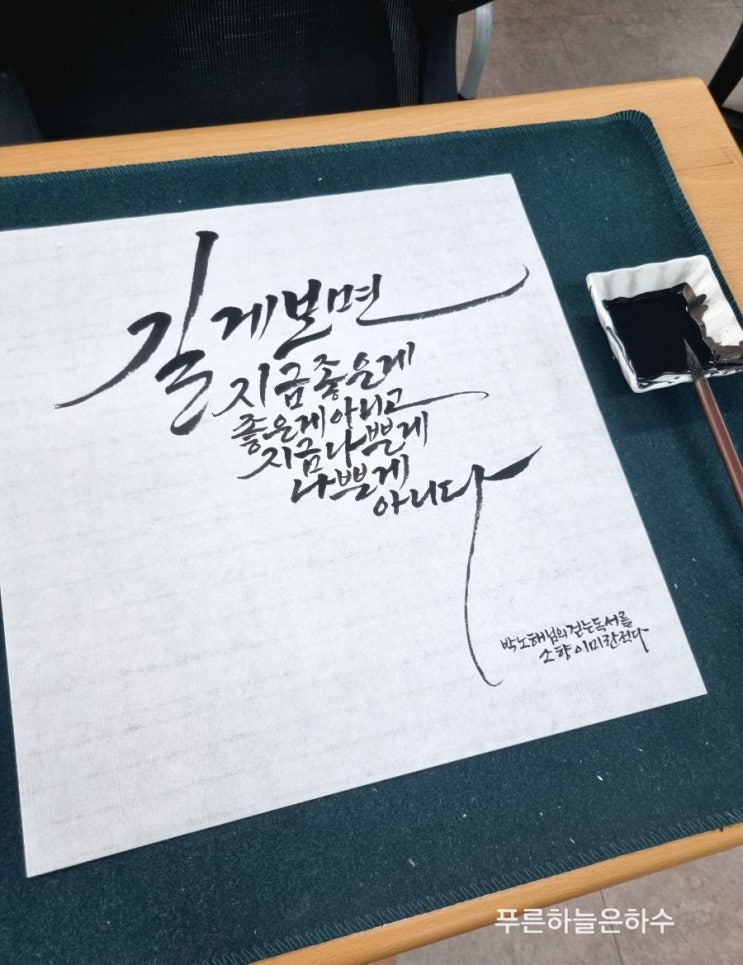 길게보면
지금좋은게
좋은게아니고
지금나쁜게
나쁜게
아니다
박노해님의걷는독서를
소향이미란적다
푸른하늘은하수